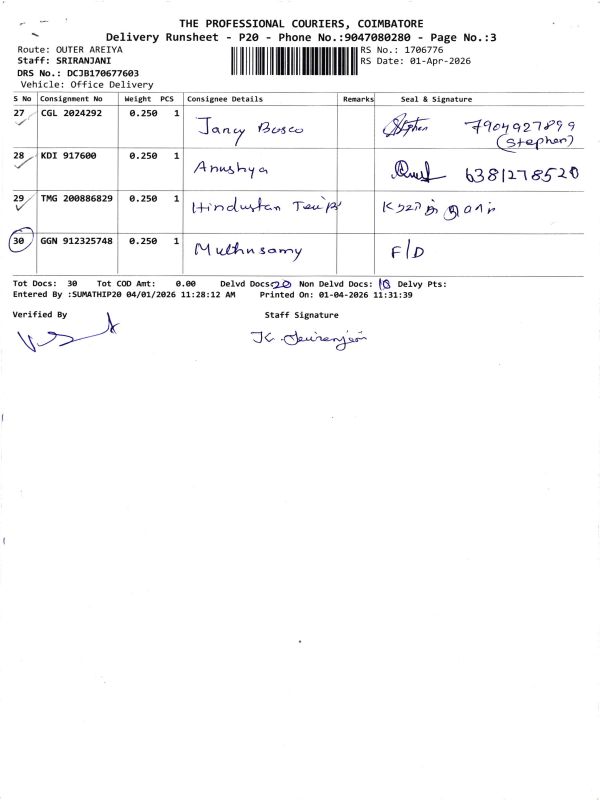 THE PROFESSIONAL COURIERS, COIMBATORE
Delivery Runsheet - P20 - Phone No.:9047080280 - Page No.:3
Route: OUTER AREIYA
RS No.: 1706776
Staff: SRIRANJANI
RS Date: 01-Apr-2026
DRS No.: DCJB170677603
Vehicle: Office Delivery
S No Consignment No Weight PCS Consignee Details Remarks Seal & Signature
27 CGL 2024292 0.250 1 Jancy Bosco Stephen 7904927899
(Stephen)
28 KDI 917600 0.250 1 Anushya 6381278520
29 TMG 200886829 0.250 1 Hindustan
30 GGN 912325748 0.250 1 Muthusamy F/D
Tot Docs: 30 Tot COD Amt: 0.00 Delvd Docs: 20 Non Delvd Docs: 10 Delvy Pts:
Entered By :SUMATHIP20 04/01/2026 11:28:12 AM Printed On: 01-04-2026 11:31:39
Verified By Staff Signature